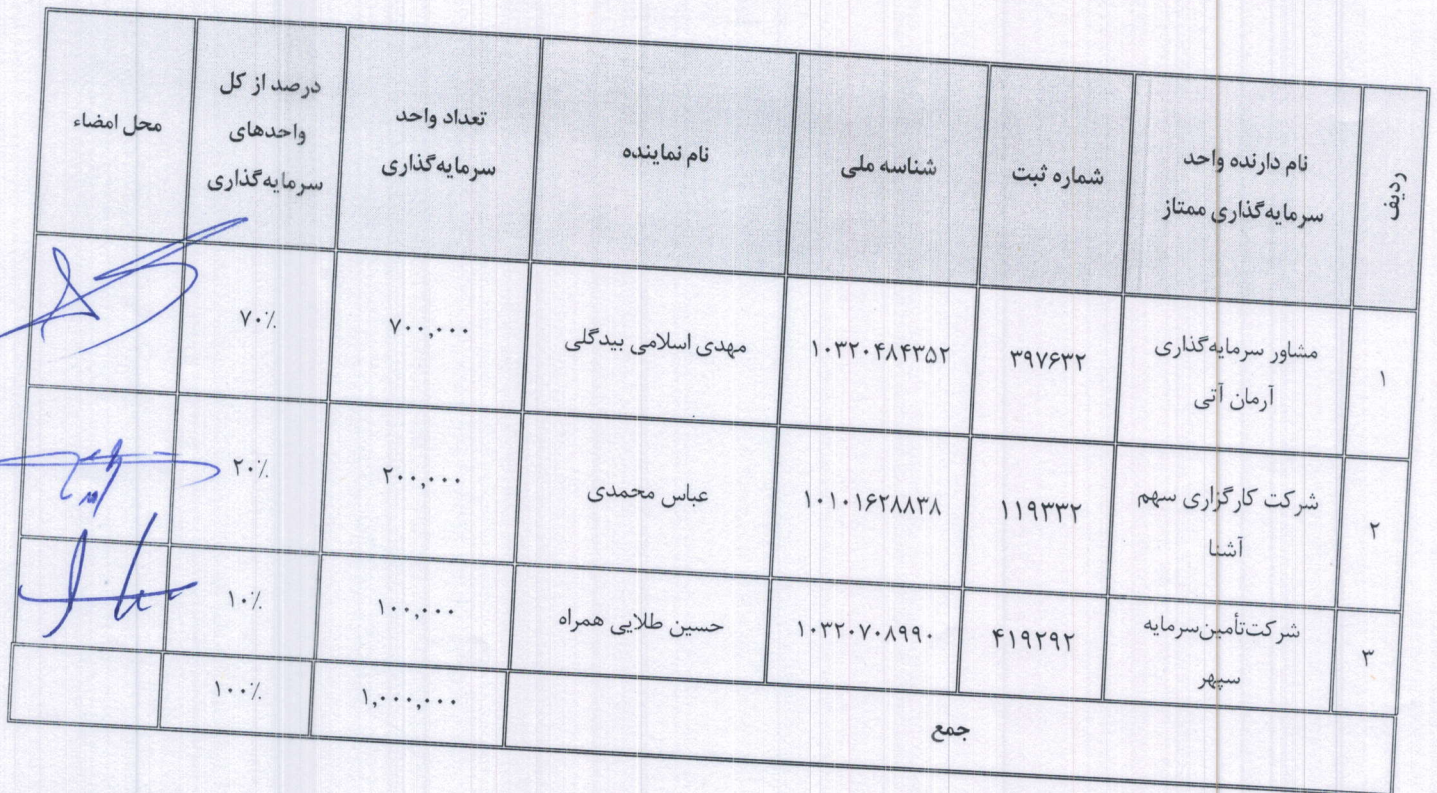 ردیف
نام دارنده واحد
سرمایه‌گذاری ممتاز
شماره ثبت
شناسه ملی
نام نماینده
تعداد واحد
سرمایه‌گذاری
درصد از کل
واحدهای
سرمایه‌گذاری
محل امضاء
۱
مشاور سرمایه‌گذاری
آرمان آتی
۳۹۷۶۳۲
۱۰۳۲۰۴۸۴۳۵۲
مهدی اسلامی بیدگلی
۷۰۰,۰۰۰
۷۰٪
۲
شرکت کارگزاری سهم
آشنا
۱۱۹۳۳۲
۱۰۱۰۱۶۲۸۸۳۸
عباس محمدی
۲۰۰,۰۰۰
۲۰٪
۳
شرکت‌تأمین‌سرمایه
سپهر
۴۱۹۲۹۲
۱۰۳۲۰۷۰۸۹۹۰
حسین طلایی همراه
۱۰۰,۰۰۰
۱۰٪
جمع
۱,۰۰۰,۰۰۰
۱۰۰٪